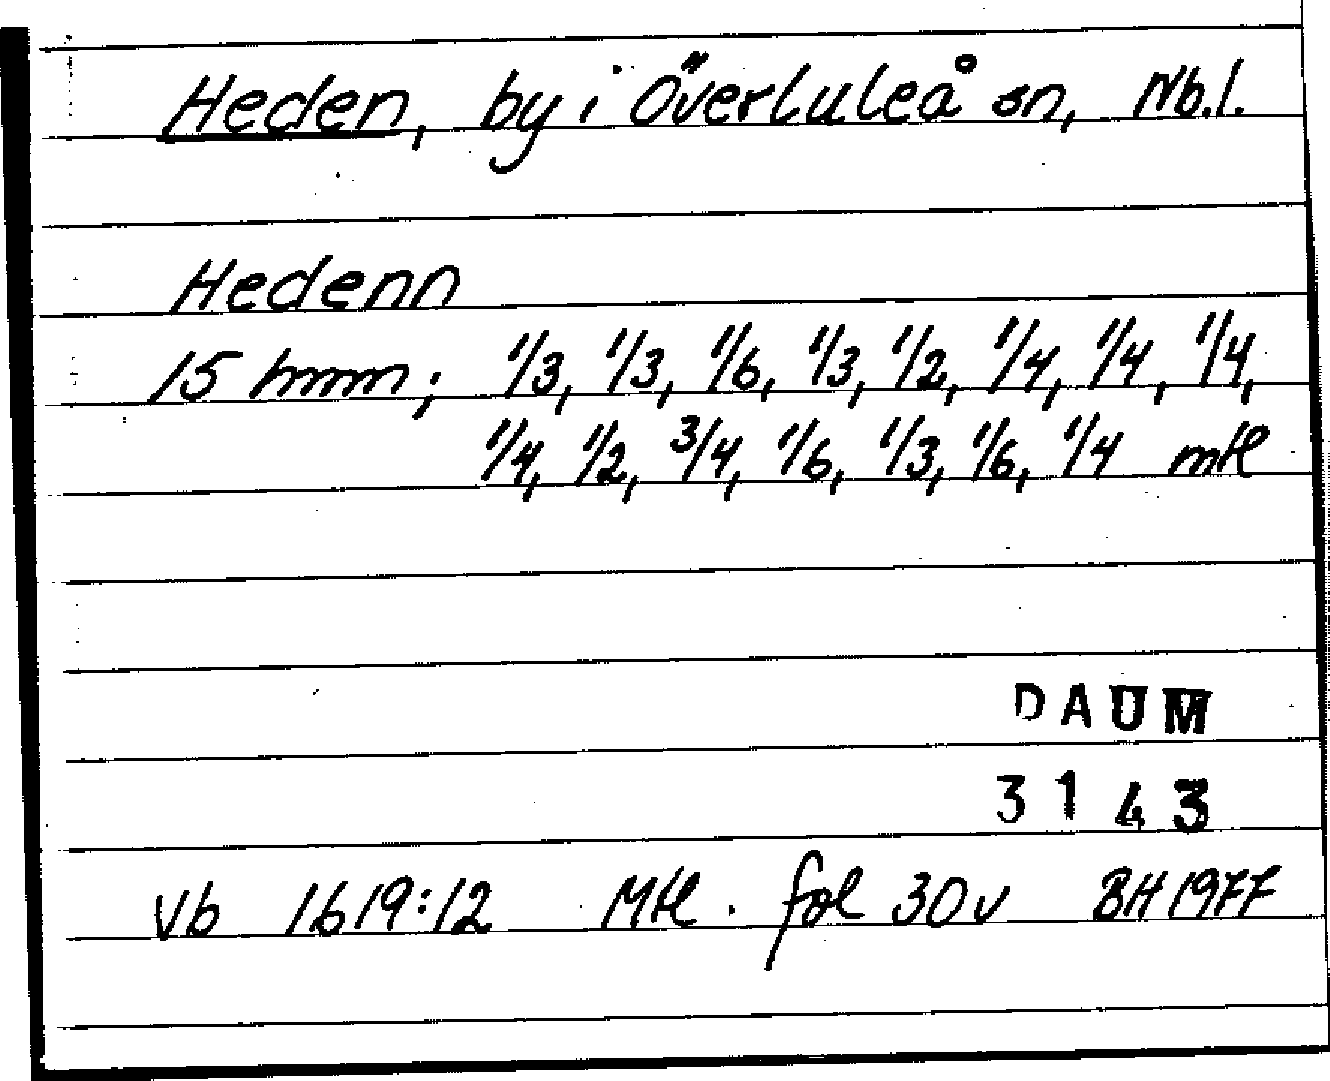 Heden, by i Överluleå sn, Nb.l.
Hedenn
15 hmm; 1/3, 1/3, 1/6, 1/3, 1/2, 1/4, 1/4, 1/4,
1/4, 1/2, 3/4, 1/6, 1/3, 1/6, 1/4 mtl
DAUM
3143
Vb 1619:12 Mtl. fol 30v BH 1977